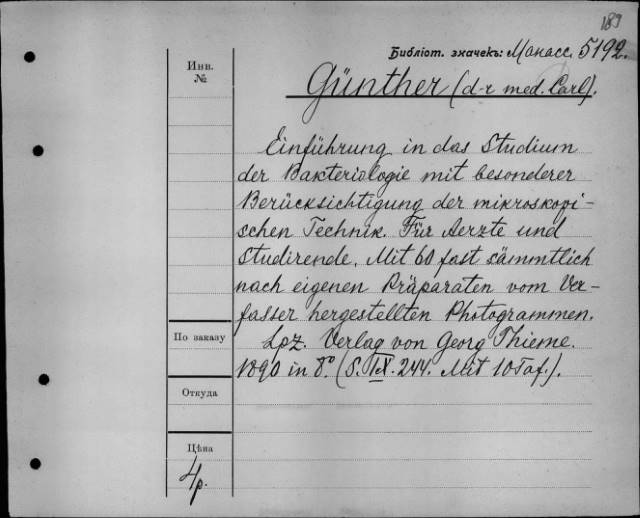 189
Библіот. значекъ: Манасс. 5192.
Инв.
№
Günther (d-r med. Carl).
Einführung in das Studium
der Bakteriologie mit besonderer
Berücksichtigung der mikroskopi-
schen Technik. Für Aerzte und
Studirende. Mit 60 fast sämmtlich
nach eigenen Präparaten vom Ver-
fasser hergestellten Photogrammen.
Lpz. Verlag von Georg Thieme.
1890 in 8° (S. IX. 244. Mit 10 Taf.).
По заказу
Откуда
Цѣна
4 р.